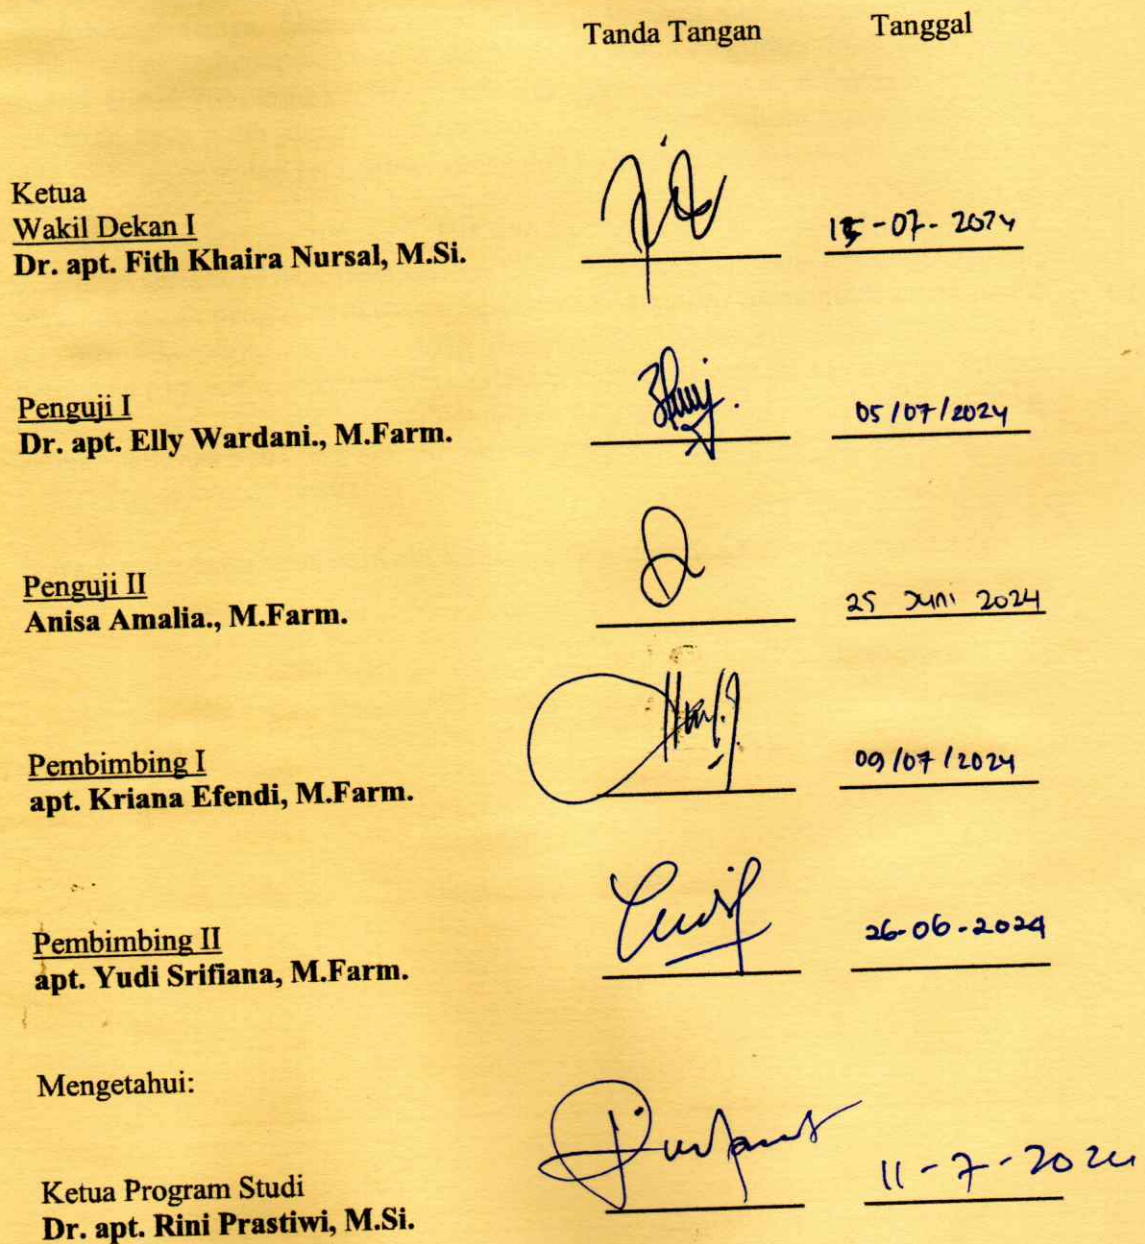 Tanda Tangan Tanggal
Ketua
Wakil Dekan I
Dr. apt. Fith Khaira Nursal, M.Si. -07-2024
Penguji I
Dr. apt. Elly Wardani., M.Farm. 05/07/2024
Penguji II
Anisa Amalia., M.Farm. 25 Juni 2024
Pembimbing I
apt. Kriana Efendi, M.Farm. 09/07/2024
Pembimbing II
apt. Yudi Srifiana, M.Farm. 26-06-2024
Mengetahui:
Ketua Program Studi 11-7-2024
Dr. apt. Rini Prastiwi, M.Si.